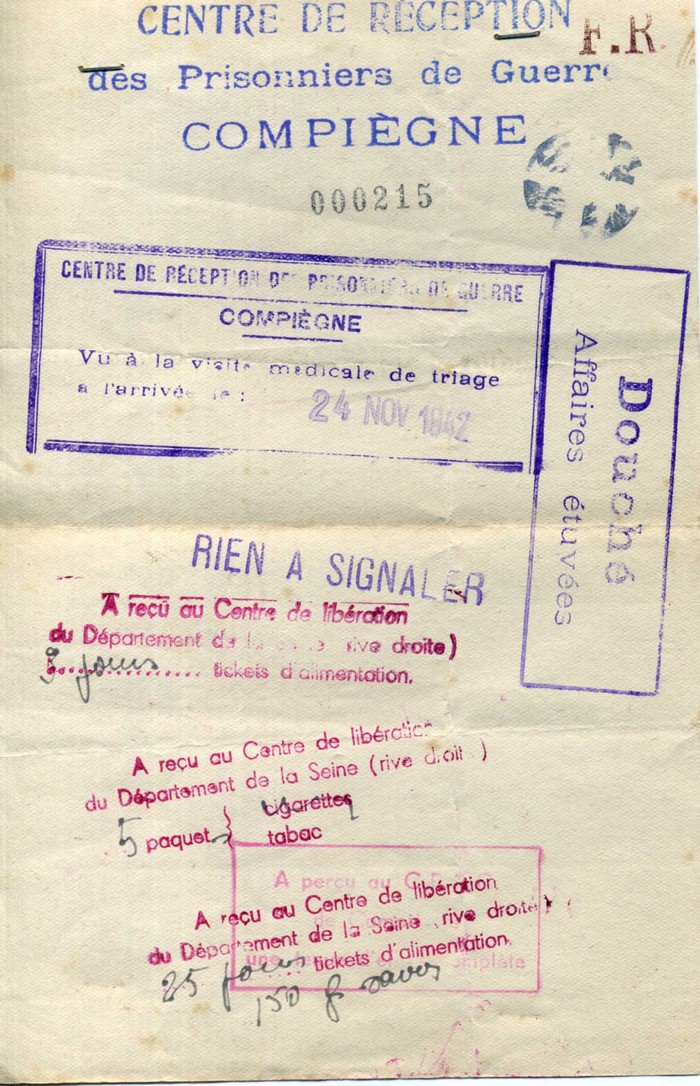 CENTRE DE RÉCEPTION
F.R.
des Prisonniers de Guerre
COMPIÈGNE
000215
CENTRE DE RÉCEPTION DES PRISONNIERS DE GUERRE
COMPIÈGNE
Vu à la visite médicale de triage
a l'arrivée le :
24 NOV 1942
Douché
Affaires étuvées
RIEN A SIGNALER
A reçu au Centre de libération
du Département de la Seine rive droite)
jours
tickets d'alimentation.
A reçu au Centre de libération
du Département de la Seine (rive droite)
cigarettes
5 paquets
tabac
A perçu au
A reçu au Centre de libération
du Département de la Seine rive droite)
25 jours tickets d'alimentation.
une complète
150 g savon